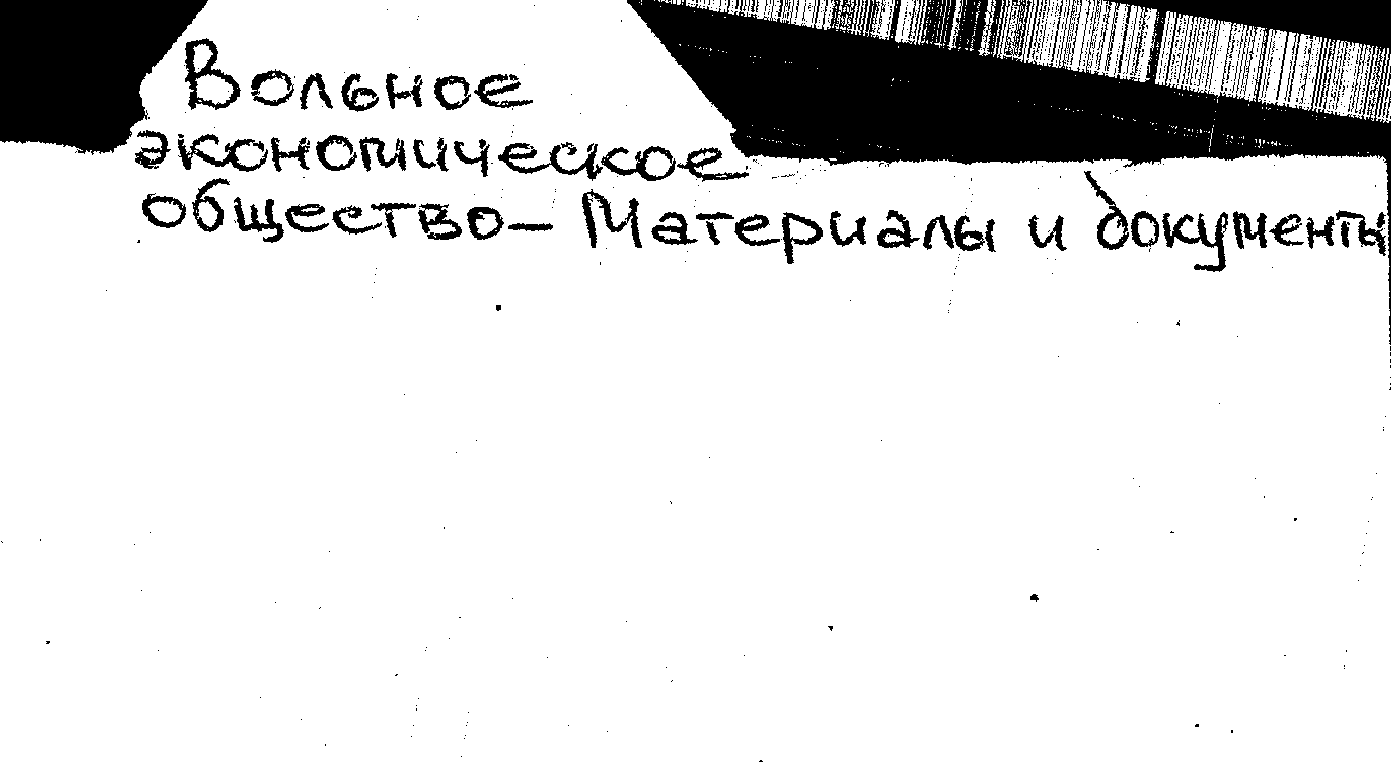 Вольное
экономическое
общество – Материалы и документы